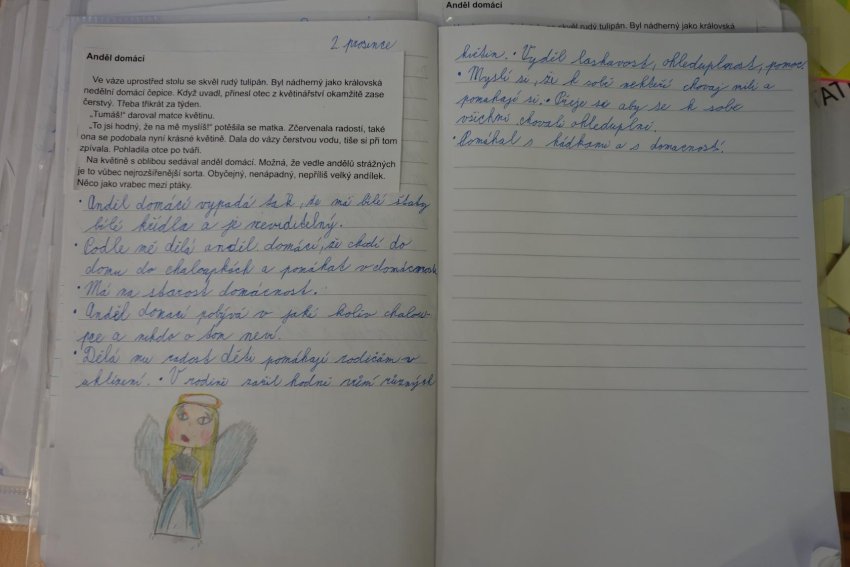 2 prosince
Anděl domácí
Ve váze uprostřed stolu se skvěl rudý tulipán. Byl nádherný jako královská
nedělní domácí čepice. Když uvadl, přinesl otec z květinářství okamžitě zase
čerstvý. Třeba třikrát za týden.
„Tumáš!" daroval matce květinu.
„To jsi hodný, že na mě myslíš!" potěšila se matka. Zčervenala radostí, také
ona se podobala nyní krásné květině. Dala do vázy čerstvou vodu, tiše si při tom
zpívala. Pohladila otce po tváři.
Na květině s oblibou sedával anděl domácí. Možná, že vedle andělů strážných
je to vůbec nejrozšířenější sorta. Obyčejný, nenápadný, nepříliš velký andílek.
Něco jako vrabec mezi ptáky.
• Anděl domácí vypadá tak, že má bílé šaty
bílé křídla a je neviditelný.
• Podle mě dělá anděl domácí, že chodí do
domu do chaloupkách a pomákat v domácnosti
• Má na starost domácnost.
• Anděl domací pobývá v jaké koliv chalou-
pce a nikdo o tom neví.
• Dělá mu radost děti pomákají rodičům v
uklízení. • V rodině zařil hodně různých
Anděl domácí
se skvěl rudý tulipán. Byl nádherný jako královská
květin. • Vyděl laskavost, ohleduplnost, pomoc.
• Myslí si, že k sobě někteří chovaj mile a
pomahají si. • Přeje si aby se k sobe
všichni chovali ohleduplní.
• Pomáhal s hádkami a s domácností.